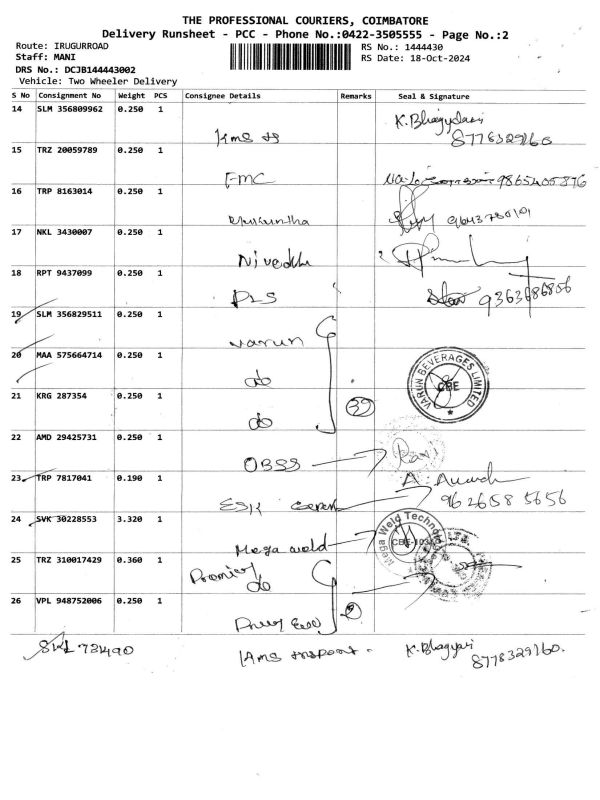 THE PROFESSIONAL COURIERS, COIMBATORE
Delivery Runsheet - PCC - Phone No.:0422-3505555 - Page No.:2
Route: IRUGURROAD
Staff: MANI
DRS No.: DCJB144443002
Vehicle: Two Wheeler Delivery
RS No.: 1444430
RS Date: 18-Oct-2024
S No Consignment No Weight PCS Consignee Details Remarks Seal & Signature
14 SLM 356809962 0.250 1 K. Bhagyalaxi
Kms 8778329160
15 TRZ 20059789 0.250 1
FMC 9865405896
16 TRP 8163014 0.250 1
17 NKL 3430007 0.250 1
Nivedha
18 RPT 9437099 0.250 1
DLS 9363686856
19 SLM 356829511 0.250 1
varun
20 MAA 575664714 0.250 1
do
VARUN BEVERAGES LIMITED
CBE
21 KRG 287354 0.250 1
do 39
22 AMD 29425731 0.250 1
OBSS Ravi
23 TRP 7817041 0.190 1 A.
ESK 9626585656
24 SVK 30228553 3.320 1
Mega weld
Mega Weld Technologi
25 TRZ 310017429 0.360 1
do
26 VPL 948752006 0.250 1
721490 Kms K. Bhagyaxi
8778329160.